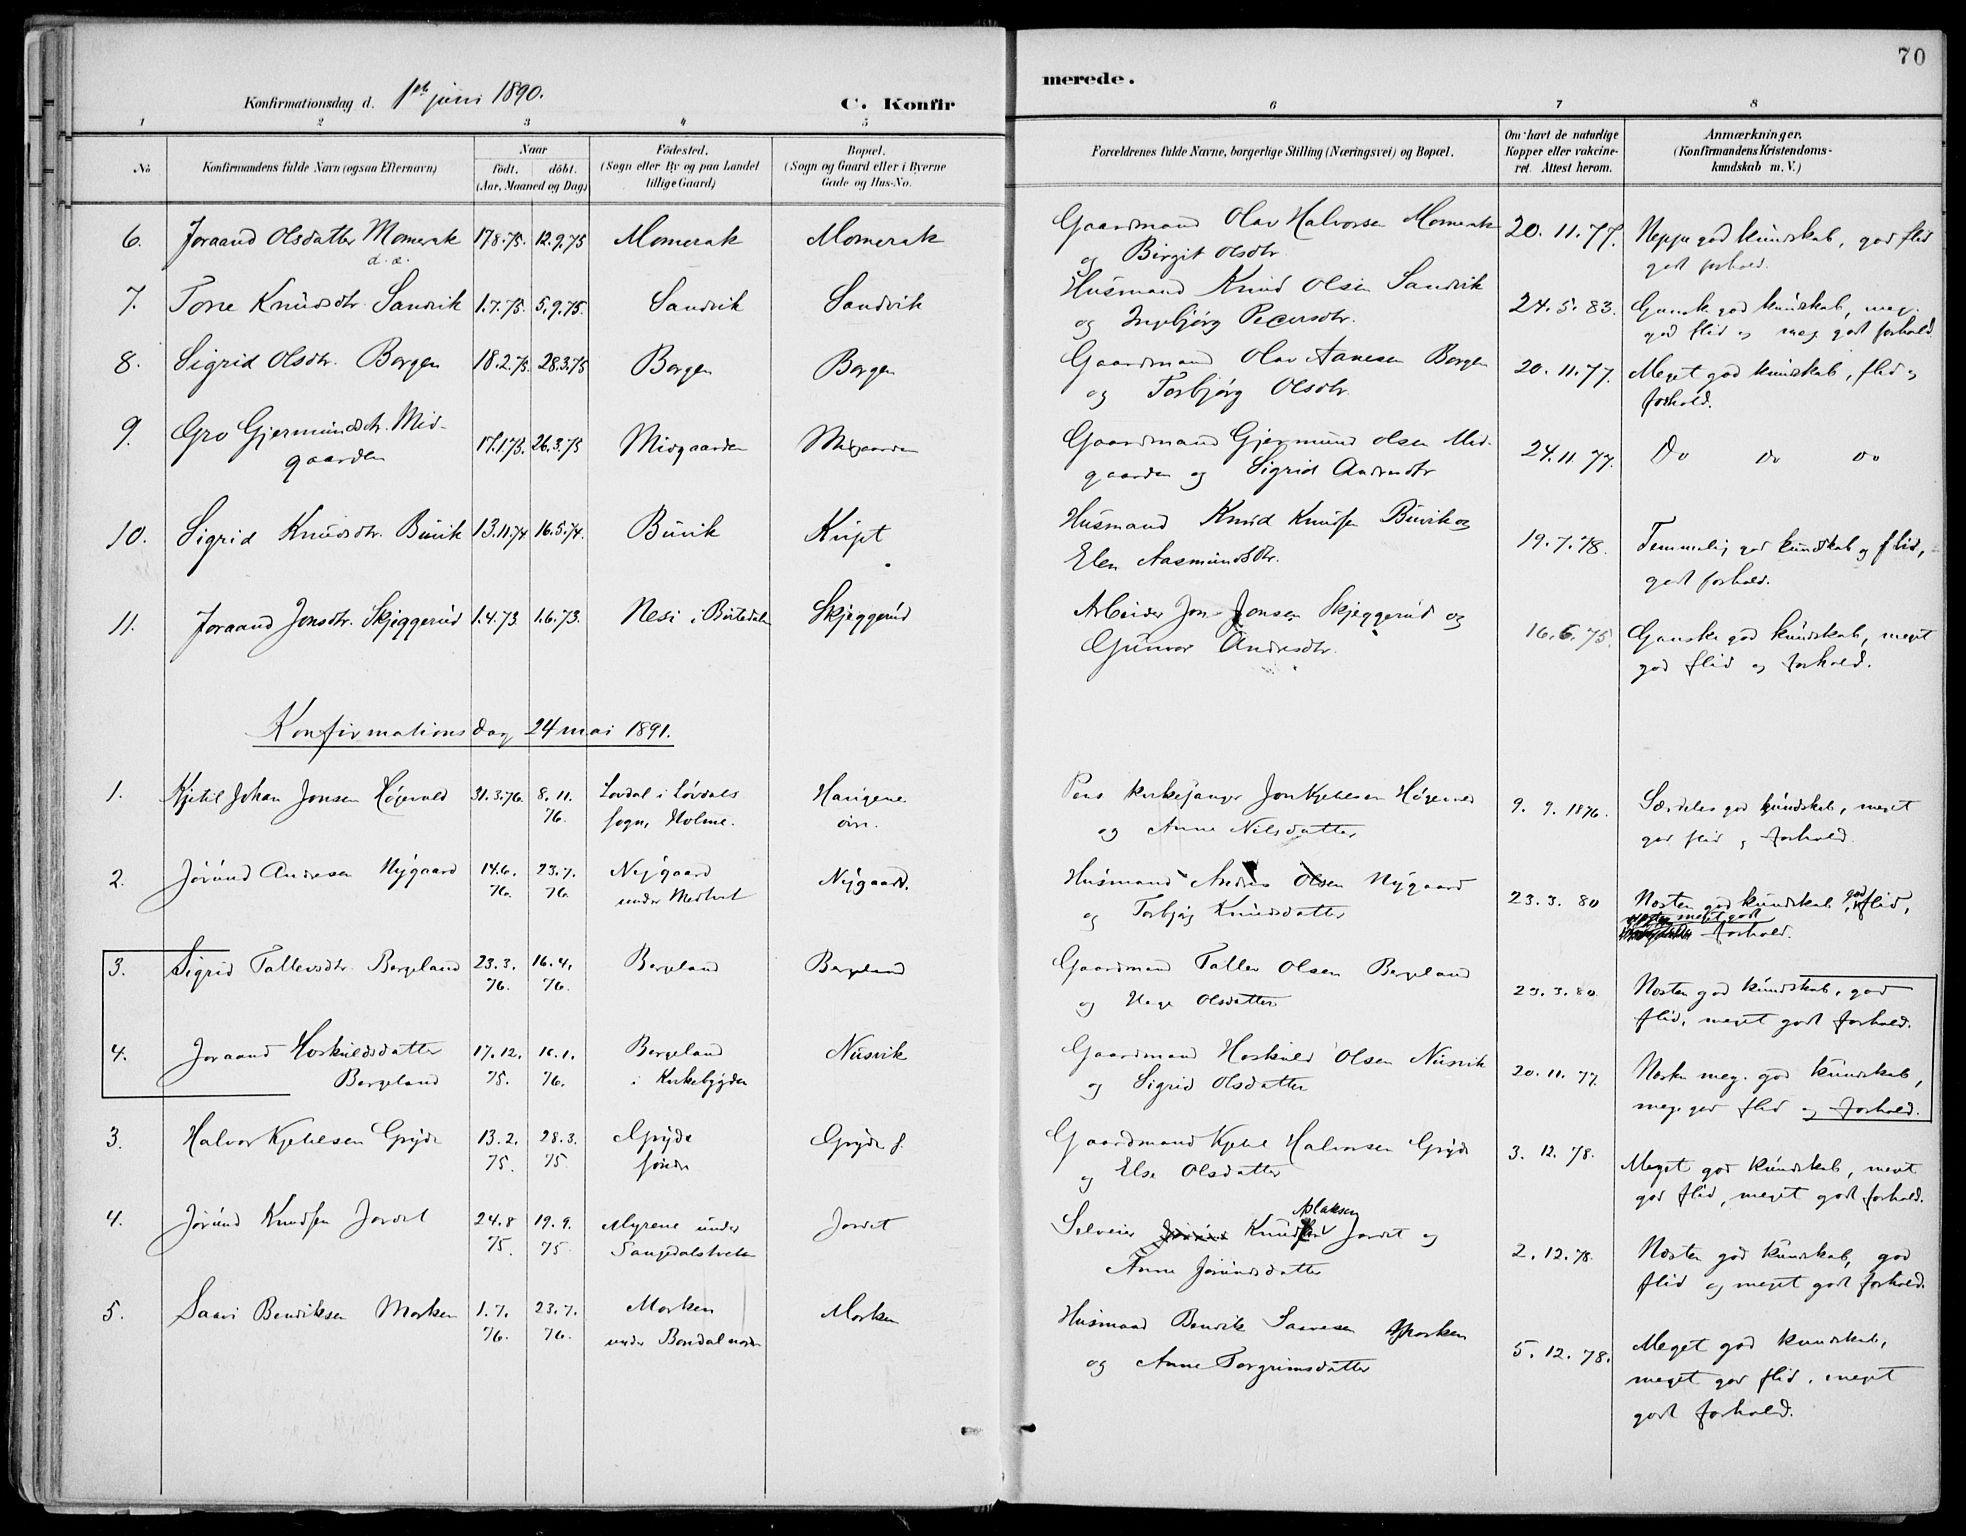 70
Konfirmationsdag d. 1ste juni 1890.
C. Konfir
merede.
1 2 3 4 5 6 7 8
No
Konfirmandens fulde Navn (ogsaa Efternavn)
Naar
födt. döbt.
(Aar, Maaned og Dag)
Födested.
(Sogn eller By og paa Landet
tillige Gaard)
Bopæl.
(Sogn og Gaard eller i Byerne
Gade og Hus-No.
Forældrenes fulde Navne, borgerlige Stilling (Næringsvei) og Bopæl.
Om havt de naturlige
Kopper eller vakcine-
ret. Attest herom.
Anmærkninger.
(Konfirmandens Kristendoms-
kundskab m. V.)
6. Joraand Olsdatter Momrak 17.8.75. 12.9.75 Momrak Momrak Gaardmand Olav Halvorsen Momrak 20.11.77. Neppe god kundskab, god flid
d. æ. og Birgit Olsdtr. godt forhold.
7. Tone Knudsdtr. Sandvik 1.7.75. 5.9.75. Sandvik Sandvik Husmand Knud Olsen Sandvik 24.5.83. Ganske god kundskab, meg.
og Ingebjørg Pedersdtr. god flid og meg. godt forhold
8. Sigrid Olsdtr. Borgen 18.2.75. 28.3.75 Borgen Borgen Gaardmand Olav Aanesen Borgen 20.11.77. Meget god kundskab, flid og
og Torbjørg Olsdtr. forhold.
9. Gro Gjermundsdtr. Mid- 17.1.75. 26.3.75 Midgaarden Midgaarden Gaardmand Gjermund Olsen Mid- 24.11 77. Do Do Do
gaarden gaarden og Sigrid Andresdtr
10. Sigrid Knudsdtr. Buvik 13.11.74 16.5.74. Buvik Husmand Knud Knudsen Buvik og 19.7.78. Temmelig god kundskab og flid,
Elen Aasmundsdtr. godt forhold.
11. Joraand Jonsdtr. Skjeggerud 1.4.73. 1.6.73. Nesi i Børtedalen Skjeggerud Arbeider Jon Jonsen Skjeggerud og 16.6.75. Ganske god kundskab, meget
Gunvor Andresdtr. god flid og forhold.
Konfirmationsdag 24 mai 1891.
1. Kjetil Johan Jonsen 31.3.76. 8.11. Lovdal i Løvdals Jon Kjetilsen 9. 9. 1876. Særdeles god kundskab, meget
76. sogn, Holme. og Anne Nilsdatter god flid og forhold.
2. Jørund Andresen Nygaard 14.6. 23.7. Nygaard Nygaard. Husmand Andres Olsen Nygaard 23.3. 80 Næsten god kundskab, god flid,
76. 76. under og Torbjørg Knudsdatter næsten meget godt
forhold.
3. Sigrid Tallevsdtr. Bergeland 23.3. 16.4. Bergeland Bergeland Gaardmand Tallev Olsen Bergeland 23.3.80. Næsten god kundskab, god
76. 76. og Hæge Olsdatter flid, meget godt forhold.
4. Joraand Hoskuldsdatter 17.12. 16.1. Bergeland Nusvik Gaardmand Hoskuld Olsen Nusvik 20.11. 77. Næsten meg. god kundskab,
Bergeland 75. 76. i Kirkebygden og Sigrid Olsdatter meg. god flid og forhold.
3. Halvor Kjetilsen Gryde 13.2. 28.3. Gryde Gryde s. Gaardmand Kjetil Halvorsen Gryde 3. 12. 78. Meget god kundskab, meget
75. 75. søndre og Else Olsdatter god flid, meget godt forhold.
4. Jørund Knudsen Jordet 24.8 19.9. Myrene under Jordet Selveier Knud Aslaksen Jordet og 2.12.78. Næsten god kundskab, god
75. 75 Anne Jørundsdatter flid og meget godt forhold.
5. Saavi Bendiksen Morken 1.7. 23.7. Morken Morken Husmand Bendik Saavesen Morken 5.12.78. Meget god kundskab,
76. 76. under Bondal nordre og Anne Torgrimsdatter meget god flid, meget
godt forhold.